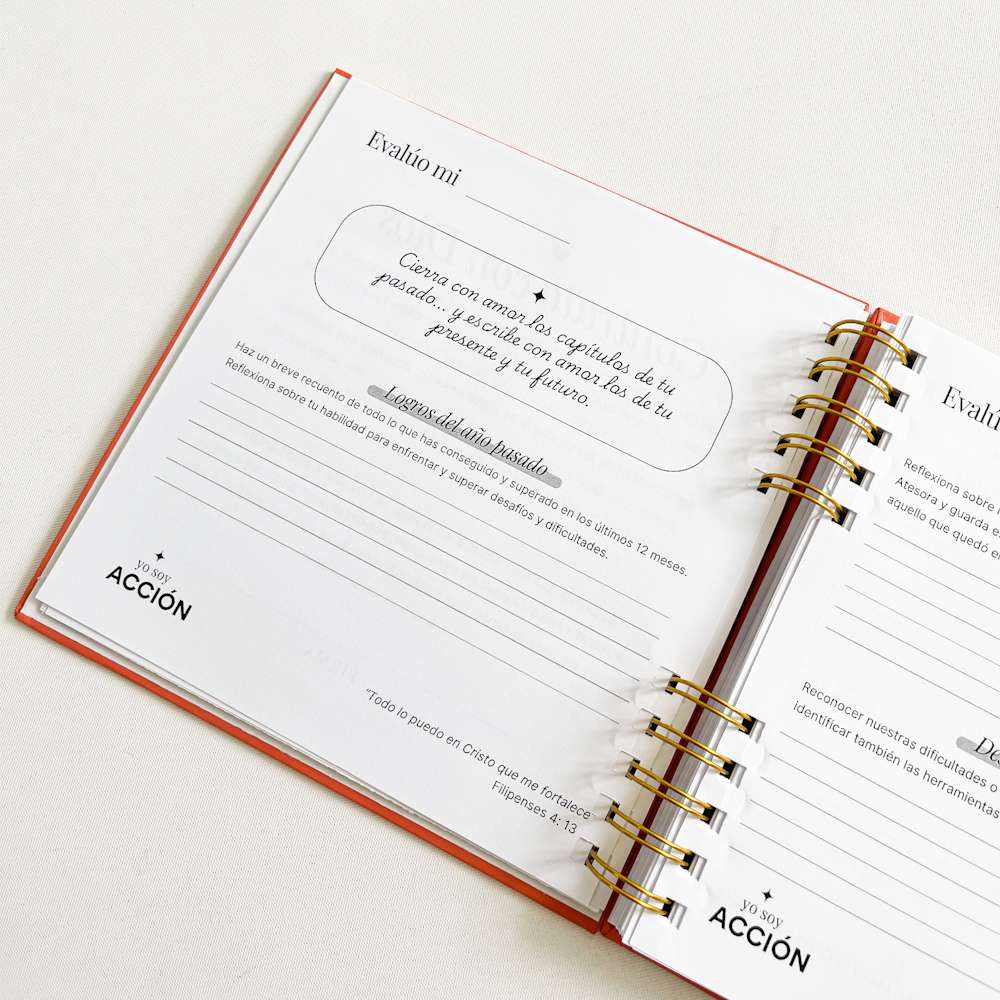 Evalúo mi
Cierra con amor los capítulos de tu
pasado... y escribe con amor los de tu
presente y tu futuro.
Logros del año pasado
Haz un breve recuento de todo lo que has conseguido y superado en los últimos 12 meses.
Reflexiona sobre tu habilidad para enfrentar y superar desafíos y dificultades.
yo soy
ACCIÓN
"Todo lo puedo en Cristo que me fortalece"
Filipenses 4: 13
Evalú
Reflexiona sobre
Atesora y guarda
aquello que quedó
De
Reconocer nuestras dificultades o
identificar también las herramientas
yo soy
ACCIÓN